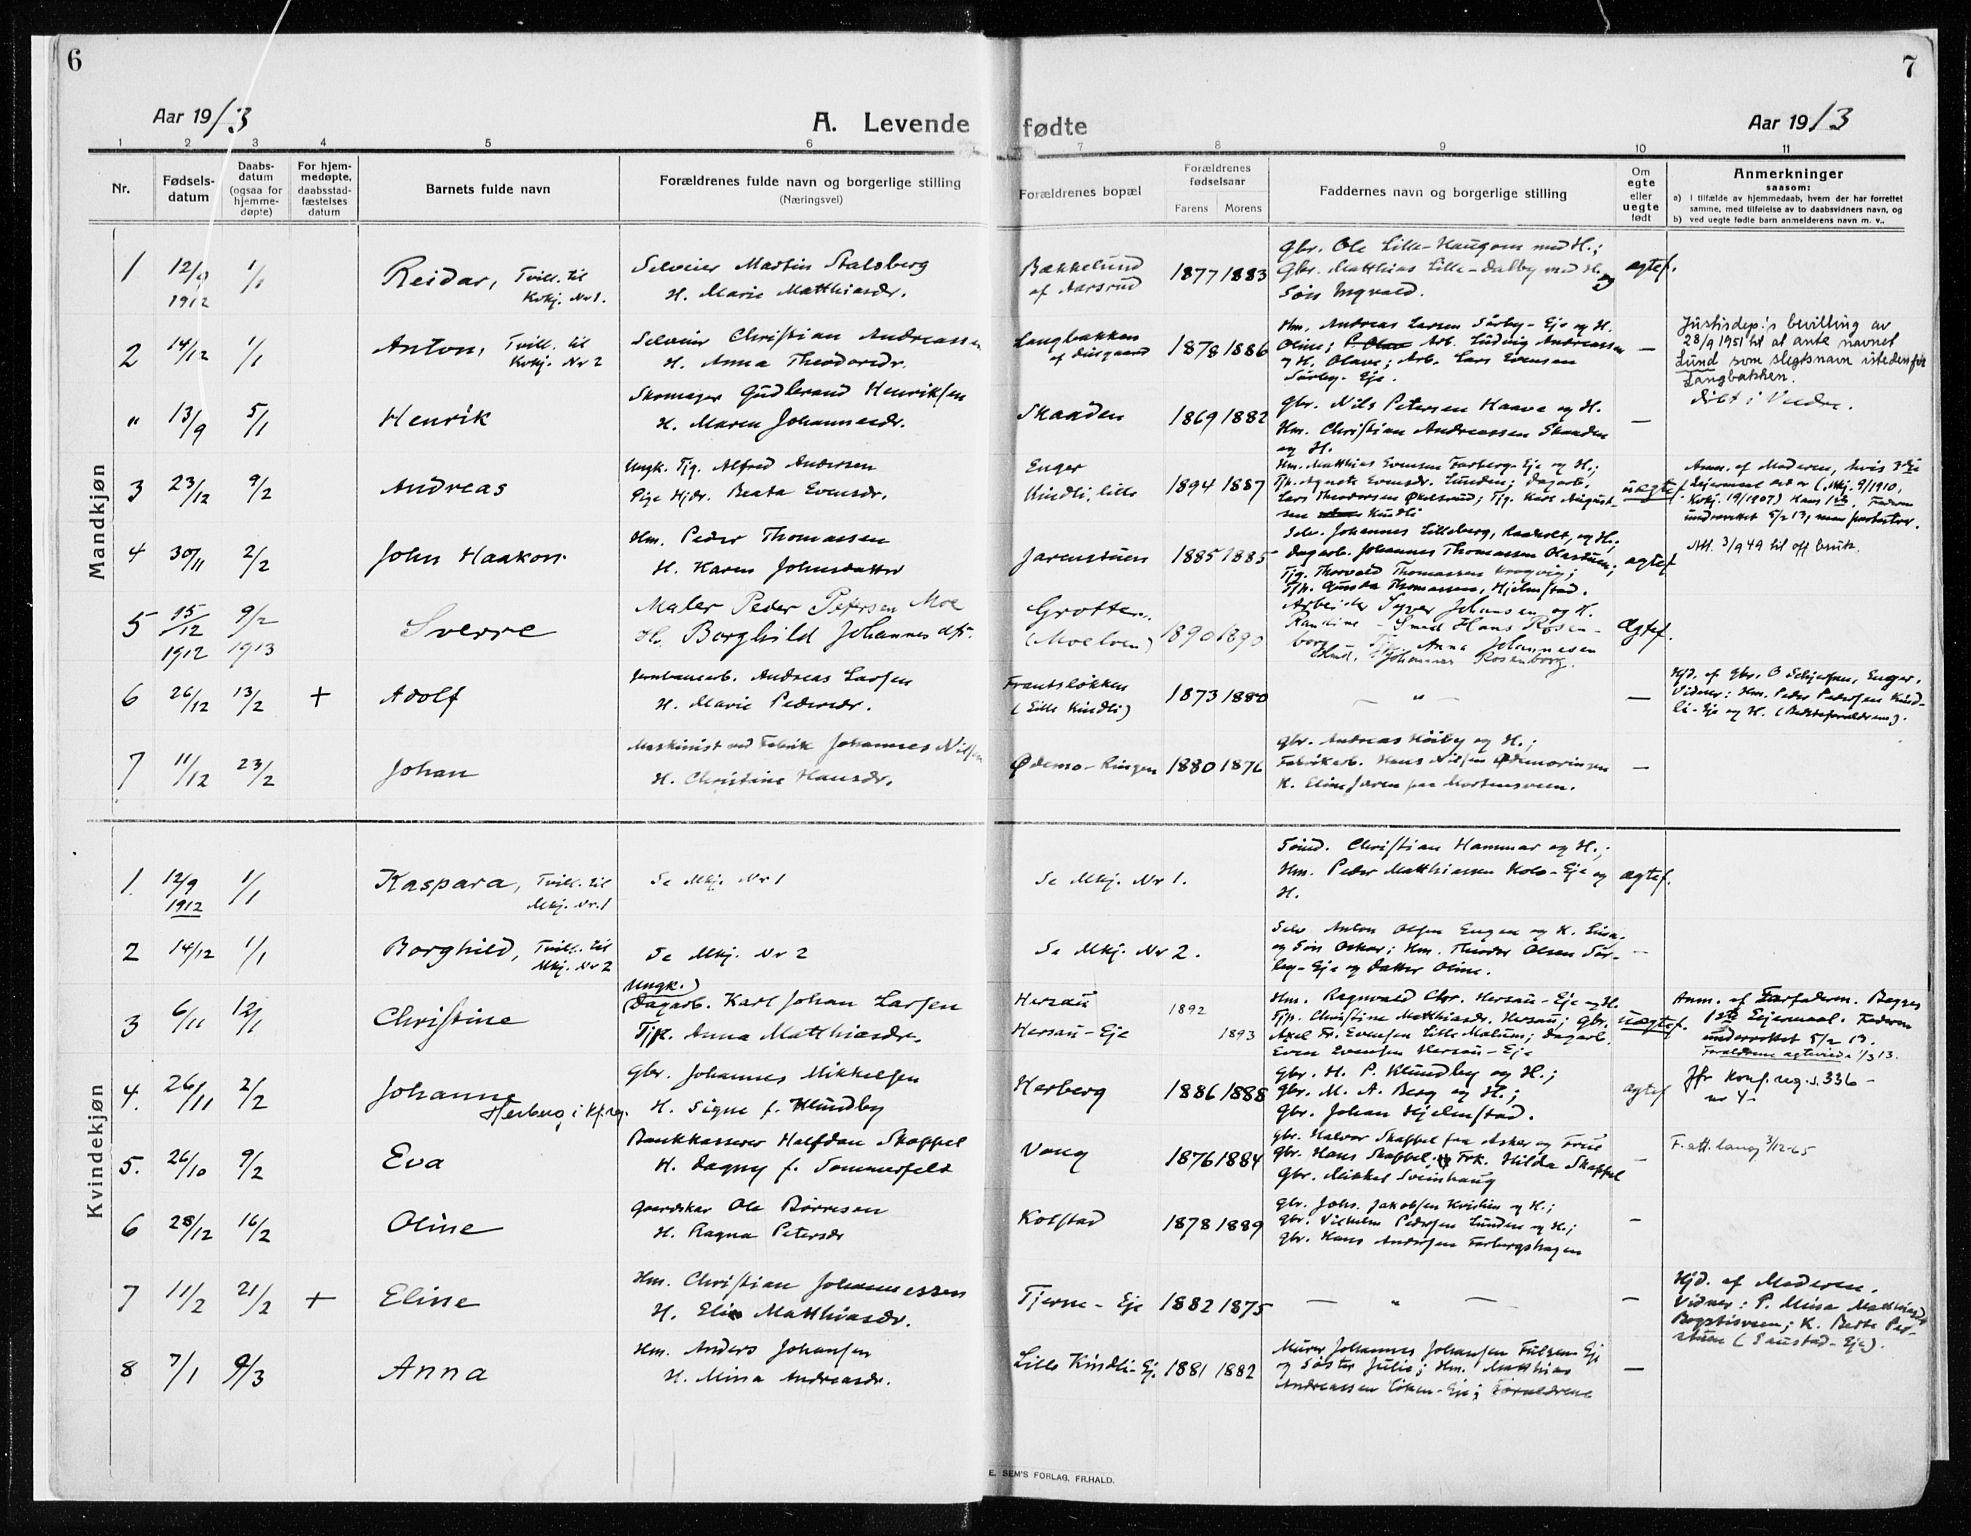 6
7
Aar 1913
A. Levende fødte
Aar 1913
1 2 3 4 5 6 7 8 9 10 11
Nr.
Fødsels-
datum
Daabs-
datum
(ogsaa for
hjemme-
døpte)
For hjem-
medøpte,
daabsstad-
fæstelses
datum
Barnets fulde navn
Forældrenes fulde navn og borgerlige stilling
(Næringsvei)
Forældrenes bopæl
Forældrenes
fødselsaar
Farens Morens
Faddernes navn og borgerlige stilling
Om
egte
eller
uegte
født
Anmerkninger
saasom:
a) i tilfælde av hjemmedaab, hvem der har forrettet
samme, med tilføielse av to daabsvidners navn, og
b) ved uegte fødte barn anmelderens navn m. v..
Mandkjøn
1 12/9 1912 1/1 Reidar, Tvill. til Kvkj. Nr 1.
Selveier Martin Stalsberg
H. Marie Matthiasdr.
Bækkelund
af Aarsrud
1877 1883
Gbr. Ole Lille-Haugom med H.;
Gbr. Matthias Lille-Dalby med H. og
Søn Ingvald.
ægtef.
2 14/12 1/1 Anton, Tvill. til Kvkj. Nr 2
Selveier Christian Andreassen
H. Anna Theodordr.
Langbakken
1878 1886
Hm. Andreas Larsen Sørby-Eje og H.
Oline; Arb. Ludvig Andreassen
og H. Olave; Arb. Lars Evensen
Sørby-Eje.
—
Justisdep:s bevilling av
28/9 1951 til at ante navnet
Lund som slegtsnavn istedenfor
Langbakken.
" 13/9 5/1 Henrik
Skomager Gudbrand Henriksen
H. Maren Johannesdr.
Skaaden
1869 1882
Gbr. Nils Petersen Haave og H.
Hm. Christian Andreassen Skaaden
og H.
—
døbt i Vardre.
3 23/12 9/2 Andreas
Ungk. Tjg. Alfred Andersen
Pige Hjdr. Beata Evensdr.
Enger
Kindli, lille
1894 1887
Hm. Matthias Evensen Farberg-Eje og H.;
Tjp. Agnete Evensdr. Lunden; Dagarb.
Lars Theodorsen Økelsrud; Tjg. Karl August-
sen Kindli
uægtef.
Anm. af Moderen, hvis 3die
Lejermaal det er (Mkj. 9/1910,
Kvkj. 19/1907) Hans 1ste. Faderen
underrettet 5/2 13, men protesterer.
4 30/11 2/2 John Haakon
Hm. Peder Thomassen
H. Karen Johnsdatter
Jarenstuen
1885 1885
Selv. Johannes Lilleberg, Raaholt, og H.;
Dagarb. Johannes Thomassen Olastuen;
Tjg. Thorvald Thomassen Krogvig;
Tjp. Gunda Thomassen, Hjelmstad.
ægtef
Att. 3/9 49 til off bruk.
5 15/12 1912 9/2 1913 Sverre
Maler Peder Petersen Moe
H. Borghild Johannesdtr.
Grotten
(Moelven)
1890 1890
Arbeider Syver Johansen og K.
Karoline - Smed Hans Rosen-
borg Anna Johannesen
Johannes Rosenborg.
Ægtef.
6 26/12 13/2 + Adolf
Jernbanearb. Andreas Larsen
H. Marie Pedersdr.
Frantsløkken
(Lille Kindli)
1873 1880
— " —
—
Hjd. af Gbr. O Schjelsen, Enger.
Vidner: Hm. Peder Pedersen Kind-
li-Eje og H. (Bedsteforældrene).
7 11/12 23/2 Johan
Maskinist ved Fabrik Johannes Nilsen
H. Christine Hansdr.
Ødemo-Ringen
1880 1876
Gbr. Andreas Høiby og H.;
Fabrikarb. Hans Nilsen Ødemoringen
K. Eline Jaren paa Mortensveen.
—
Kvindekjøn
1. 12/9 1912 1/1 Kaspara, Tvill. til Mkj. Nr. 1
Se Mkj. Nr 1
Se Mkj. Nr 1.
Christian Hammar og H.;
Hm. Peder Matthiassen Kolo-Eje og
H.
ægtef.
2 14/12 1/1 Borghild, Tvill. til Mkj. Nr 2
Se Mkj. Nr 2
Se Mkj. Nr 2.
Selv Anton Olsen Engen og K. Lina
og Søn Oskar; Hm. Theodor Olsen Sør-
by-Eje og Datter Oline.
—
3 6/11 12/1 Christine
Ungk.
(Dagarb. Karl Johan Larsen
Tjp. Anna Matthiasdr.
Hersau
Hersau-Eje
1892
1893
Hm. Ragnvald Chr. Hersau-Eje og H.
Tjp. Christine Matthiasdr. Hersau; Gbr.
Axel Fr. Evensen Lille Malum; Dagarb.
Even Evensen Hersau-Eje
uægtef.
Anm. af Farfaderen. Begges
1ste Lejermaal. Faderen
underrettet 5/2 13.
Forældrene ægteviede 1/3 13.
4. 26/11 2/2 Johanne
Herberg i Kfreg.
Gbr. Johannes Mikkelsen
H. Signe f. Klundby
Herberg
1886 1888
Gbr. H. P. Klundby og H.;
Gbr. M. A. Berg og H.;
Gbr. Johan Hjelmstad.
ægtef
Jfr Konf. reg. s. 336 -
nr 4-
5. 26/10 9/2 Eva
Bankkasserer Halfdan Skappel
H. Dagny f. Sommerfelt
Vang
1876 1884
Gbr. Halvor Skappel fra Asker og Frue
Gbr. Hans Skappel; Frk. Hilda Skappel
Gbr. Mikkel Sveinhaug
—
F. att. lang 3/12-65
6 28/12 16/2 Oline
Gaardskar Ole Børresen
H. Ragna Petersdr
Kolstad
1878 1889
Gbr. Johs. Jakobsen Kvislen og H.;
Gbr. Vilhelm Pedersen Lunden og H.;
Gbr. Hans Andersen Farbergshagen
—
7 11/2 21/2 + Eline
Hm. Christian Johannessen
H. Eline Matthiasdr.
Tjerne-Eje
1882 1875
— " —
—
Hjd. af Moderen.
Vidner: P. Mina Mathiasdr
Baptistveen; K. Berte Per-
stuen (Saustad-Eje).
8 7/1 9/3 Anna
Hm. Anders Johansen
H. Mina Andreasdr.
Lille Kindli-Ej.
1881 1882
Murer Johannes Johansen Fulsen-Eje
og Søster Julie; Hm. Matthias
Andreassen Løken-Eje; Forældrene
—
E. SEM'S FORLAG, FR.HALD.